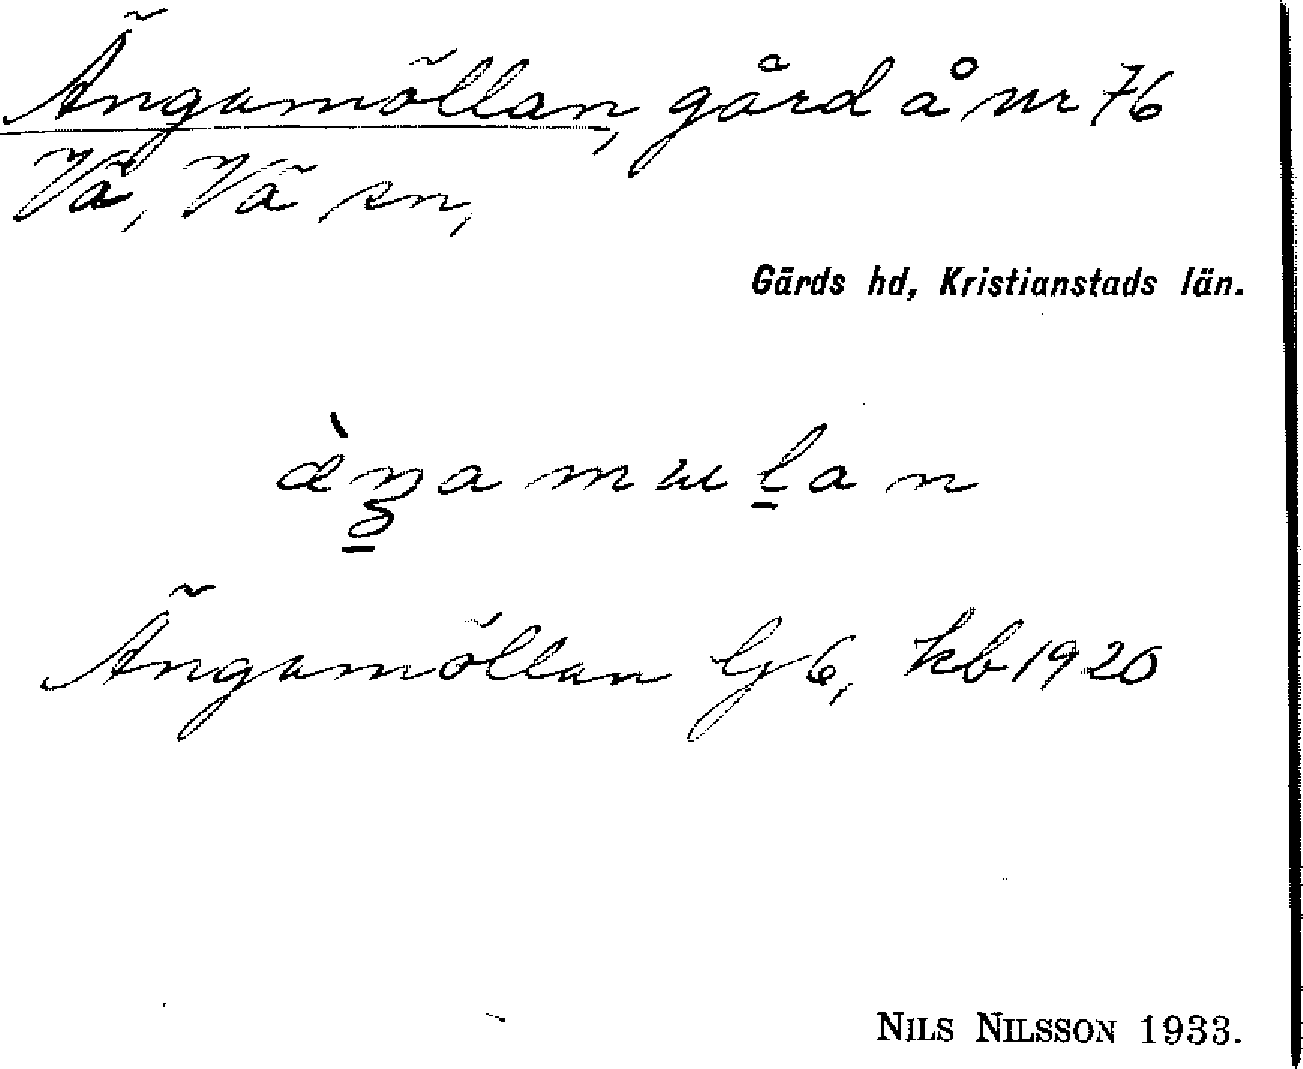 Ängamöllan, gård å nr 76
Vä, Vä sn,
Gärds hd, Kristianstads län.
Ängamöllan lj 6, kb 1920
NILS NILSSON 1933.